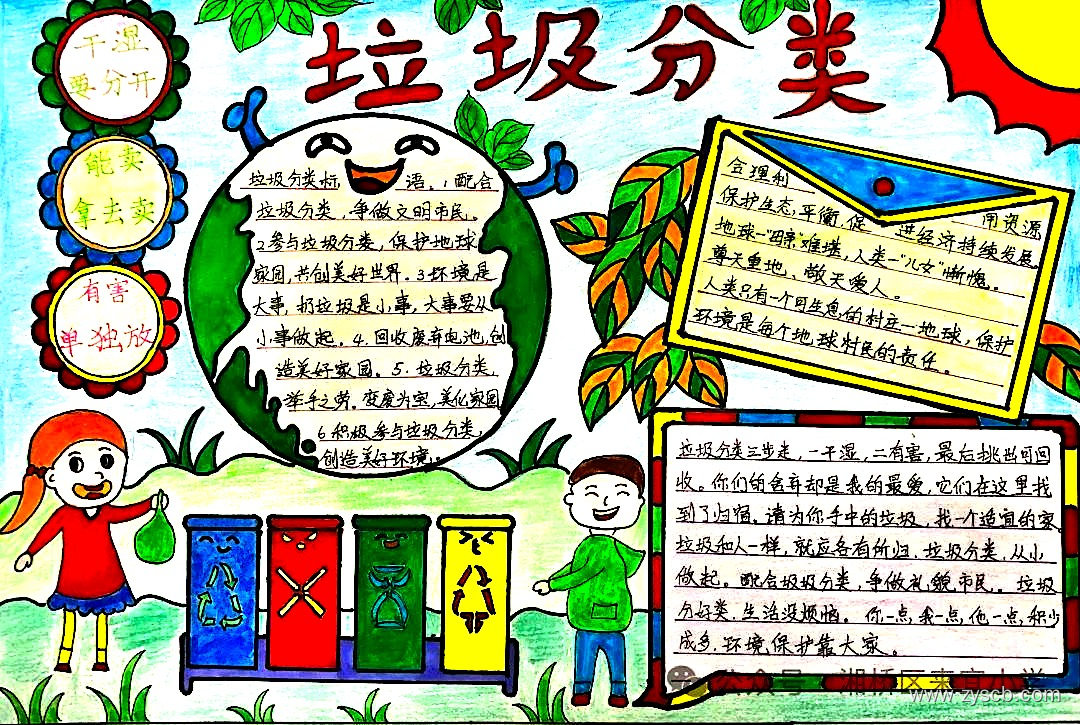 垃圾分类
干湿
要分开
能卖
拿去卖
有害
单独放
垃圾分类标语。1配合
垃圾分类，争做文明市民。
2参与垃圾分类，保护地球
家园，共创美好世界。3环境是
大事，扔垃圾是小事，大事要从
小事做起。4.回收废弃电池，创
造美好家园。5.垃圾分类，
举手之劳。变废为宝，美化家园
6积极参与垃圾分类，
创造美好环境。
合理利用资源
保护生态，平衡，促进经济持续发展。
地球一"母亲"难堪，人类一"儿女"惭愧。
尊天重地、敬天爱人。
人类只有一个可生息的村庄一地球，保护
环境是每个地球村民的责任。
垃圾分类三步走，一干湿，二有害，最后挑出可回
收。你们的舍弃却是我的最爱，它们在这里找
到了归宿。请为你手中的垃圾，找一个适宜的家
垃圾和人一样，就应各有所归．垃圾分类，从小
做起。配合圾圾分类，争做礼貌市民。垃圾
分好类．生活没烦恼。你一点，我一点，他一点，积少
成多．环境保护靠大家．
www.zyscb.com